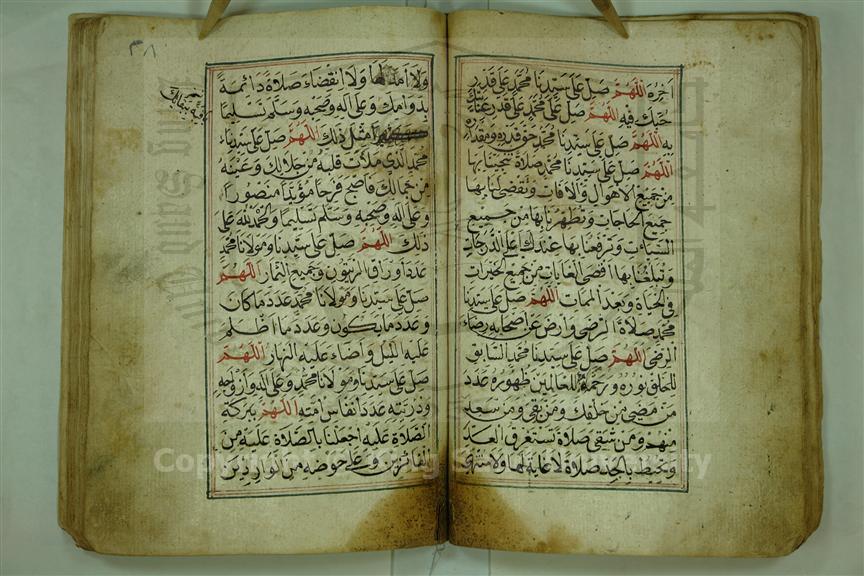 اخره اللهم صل على سيدنا محمد على قدر
حبك فيه اللهم صل على محمد على قدر عنايتك
به اللهم صل على سيدنا محمد حق قدره ومقداره
اللهم صل على سيدنا محمد صلاة تنجينا بها
من جميع الاهوال والافات وتقضي لنا بها
جميع الحاجات وتطهرنا بها من جميع
السيئات وترفعنا بها عندك على الدرجات
وتبلغنا بها اقصى الغايات من جميع الخيرات
في الحياة وبعد الممات اللهم صل على سيدنا
محمد صلاة الرضى وارض عن اصحابه رضاء
الرضى اللهم صل على سيدنا محمد السابق
للخلق نوره ورحمة للعالمين ظهوره عدد
من مضى من خلقك ومن بقي ومن سعد
منهم ومن شقي صلاة تستغرق العد
وتحيط بالحد صلاة لا غاية لها ولا منتهى
٣٨
ولا امد لها ولا انقضاء صلاة دائمة
بدوامك وعلى آله وصحبه وسلم تسليما
باقية ببقائك
مثل ذلك اللهم صل على سيدنا
محمد الذي ملأت قلبه من جلالك وعينه
من جمالك فاصبح فرحا مؤيدا منصورا
وعلى آله وصحبه وسلم تسليما والحمد لله على
ذلك اللهم صل على سيدنا ومولانا محمد
عدد اوراق الزيتون وجميع الثمار اللهم
صل على سيدنا ومولانا محمد عدد ما كان
وعدد ما يكون وعدد ما اظلم
عليه الليل واضاء عليه النهار اللهم
صل على سيدنا ومولانا محمد وعلى آله وازواجه
وذريته عدد انفاس امته اللهم ببركة
الصلاة عليه اجعلنا بالصلاة عليه من
الفائزين وعلى حوضه من الواردين